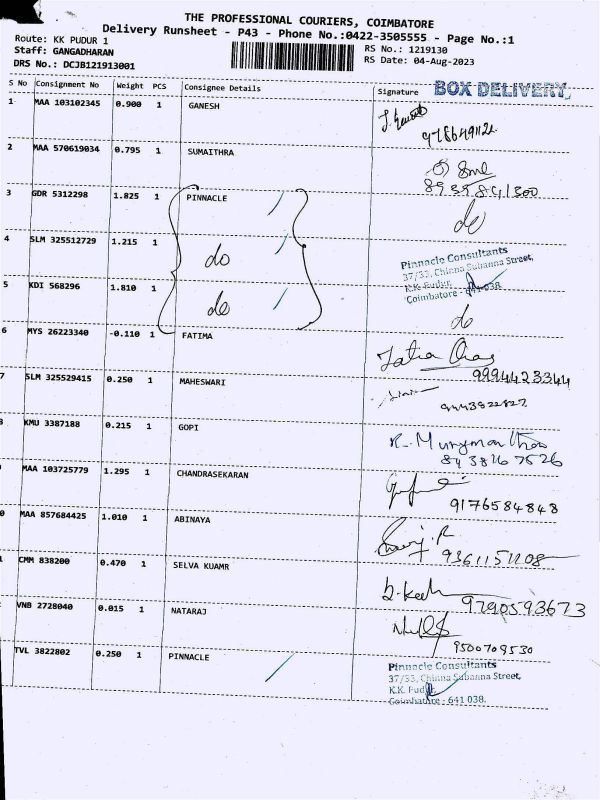 THE PROFESSIONAL COURIERS, COIMBATORE
Delivery Runsheet - P43 - Phone No.:0422-3505555 - Page No.:1
Route: KK PUDUR 1
RS No.: 1219130
Staff: GANGADHARAN
RS Date: 04-Aug-2023
DRS No.: DCJB121913001
BOX DELIVERY
S No Consignment No Weight PCS Consignee Details Signature
1 MAA 103102345 0.900 1 GANESH
2 MAA 570619034 0.795 1 SUMAITHRA
8935841300
3 GDR 5312298 1.825 1 PINNACLE
do
4 SLM 325512729 1.215 1 do
Pinnacle Consultants
37/33, Chinna Subanna Street,
K.K. Pudur,
Coimbatore - 641 038.
5 KDI 568296 1.810 1 do
do
6 MYS 26223340 -0.110 1 FATIMA
9994423344
7 SLM 325529415 0.250 1 MAHESWARI
9443922827
8 KMU 3387188 0.215 1 GOPI
8438167526
MAA 103725779 1.295 1 CHANDRASEKARAN
9176584848
0 MAA 857684425 1.010 1 ABINAYA
9361151208
CMM 838200 0.470 1 SELVA KUAMR
9790593673
VNB 2728040 0.015 1 NATARAJ
9500709530
TVL 3822802 0.250 1 PINNACLE
Pinnacle Consultants
37/33, Chinna Subanna Street,
K.K. Pudur,
Coimbatore - 641 038.